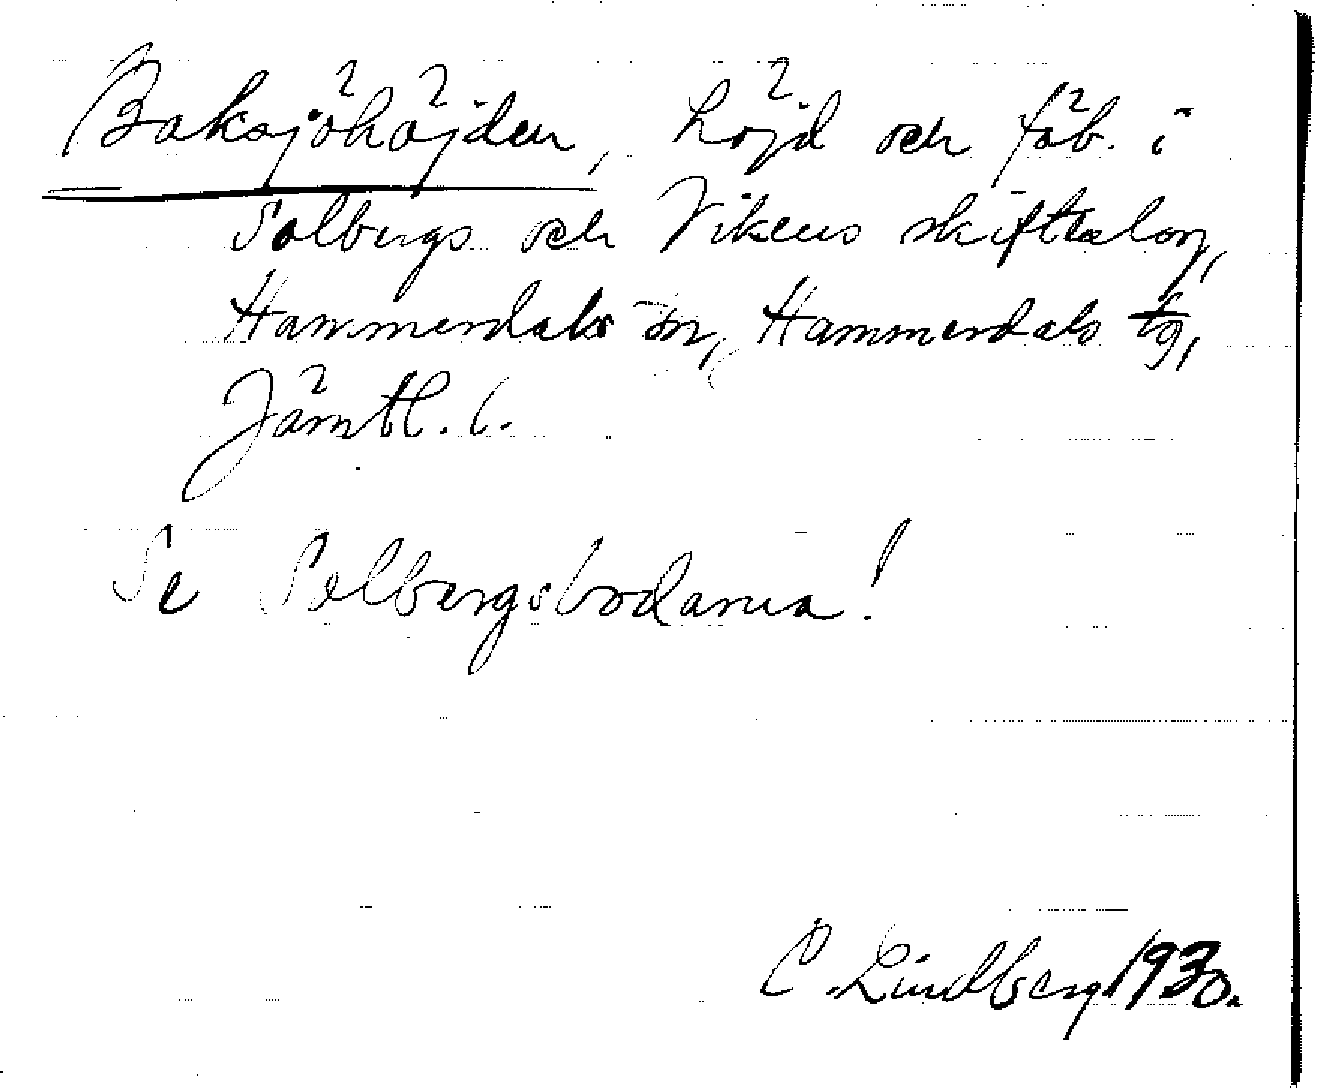 Baksjöhöjden, höjd och fäb. i
Solbergs och Vikens skifteslag,
Hammerdals sn, Hammerdals tg,
Jämtl. l.
Se Solbergsbodarna!
C. Lindberg 1930.